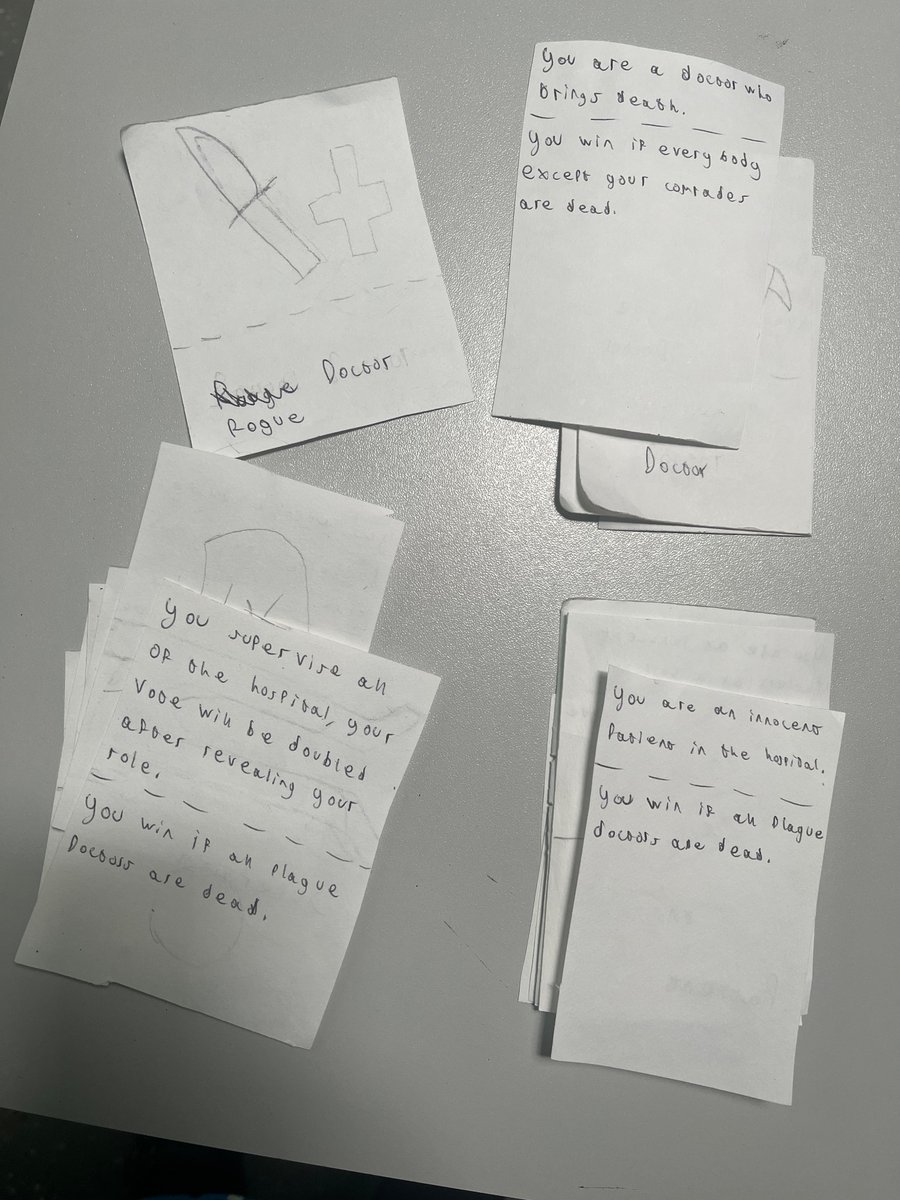 Doctor
Rogue
You are a doctor who
brings death.
You win if everybody
except your comrades
are dead.
Doctor
You supervise all
of the hospital, your
Vote will be doubled
after revealing your
role.
You win if all plague
Doctors are dead.
You are an innocent
Patient in the hospital.
You win if all Plague
doctors are dead.